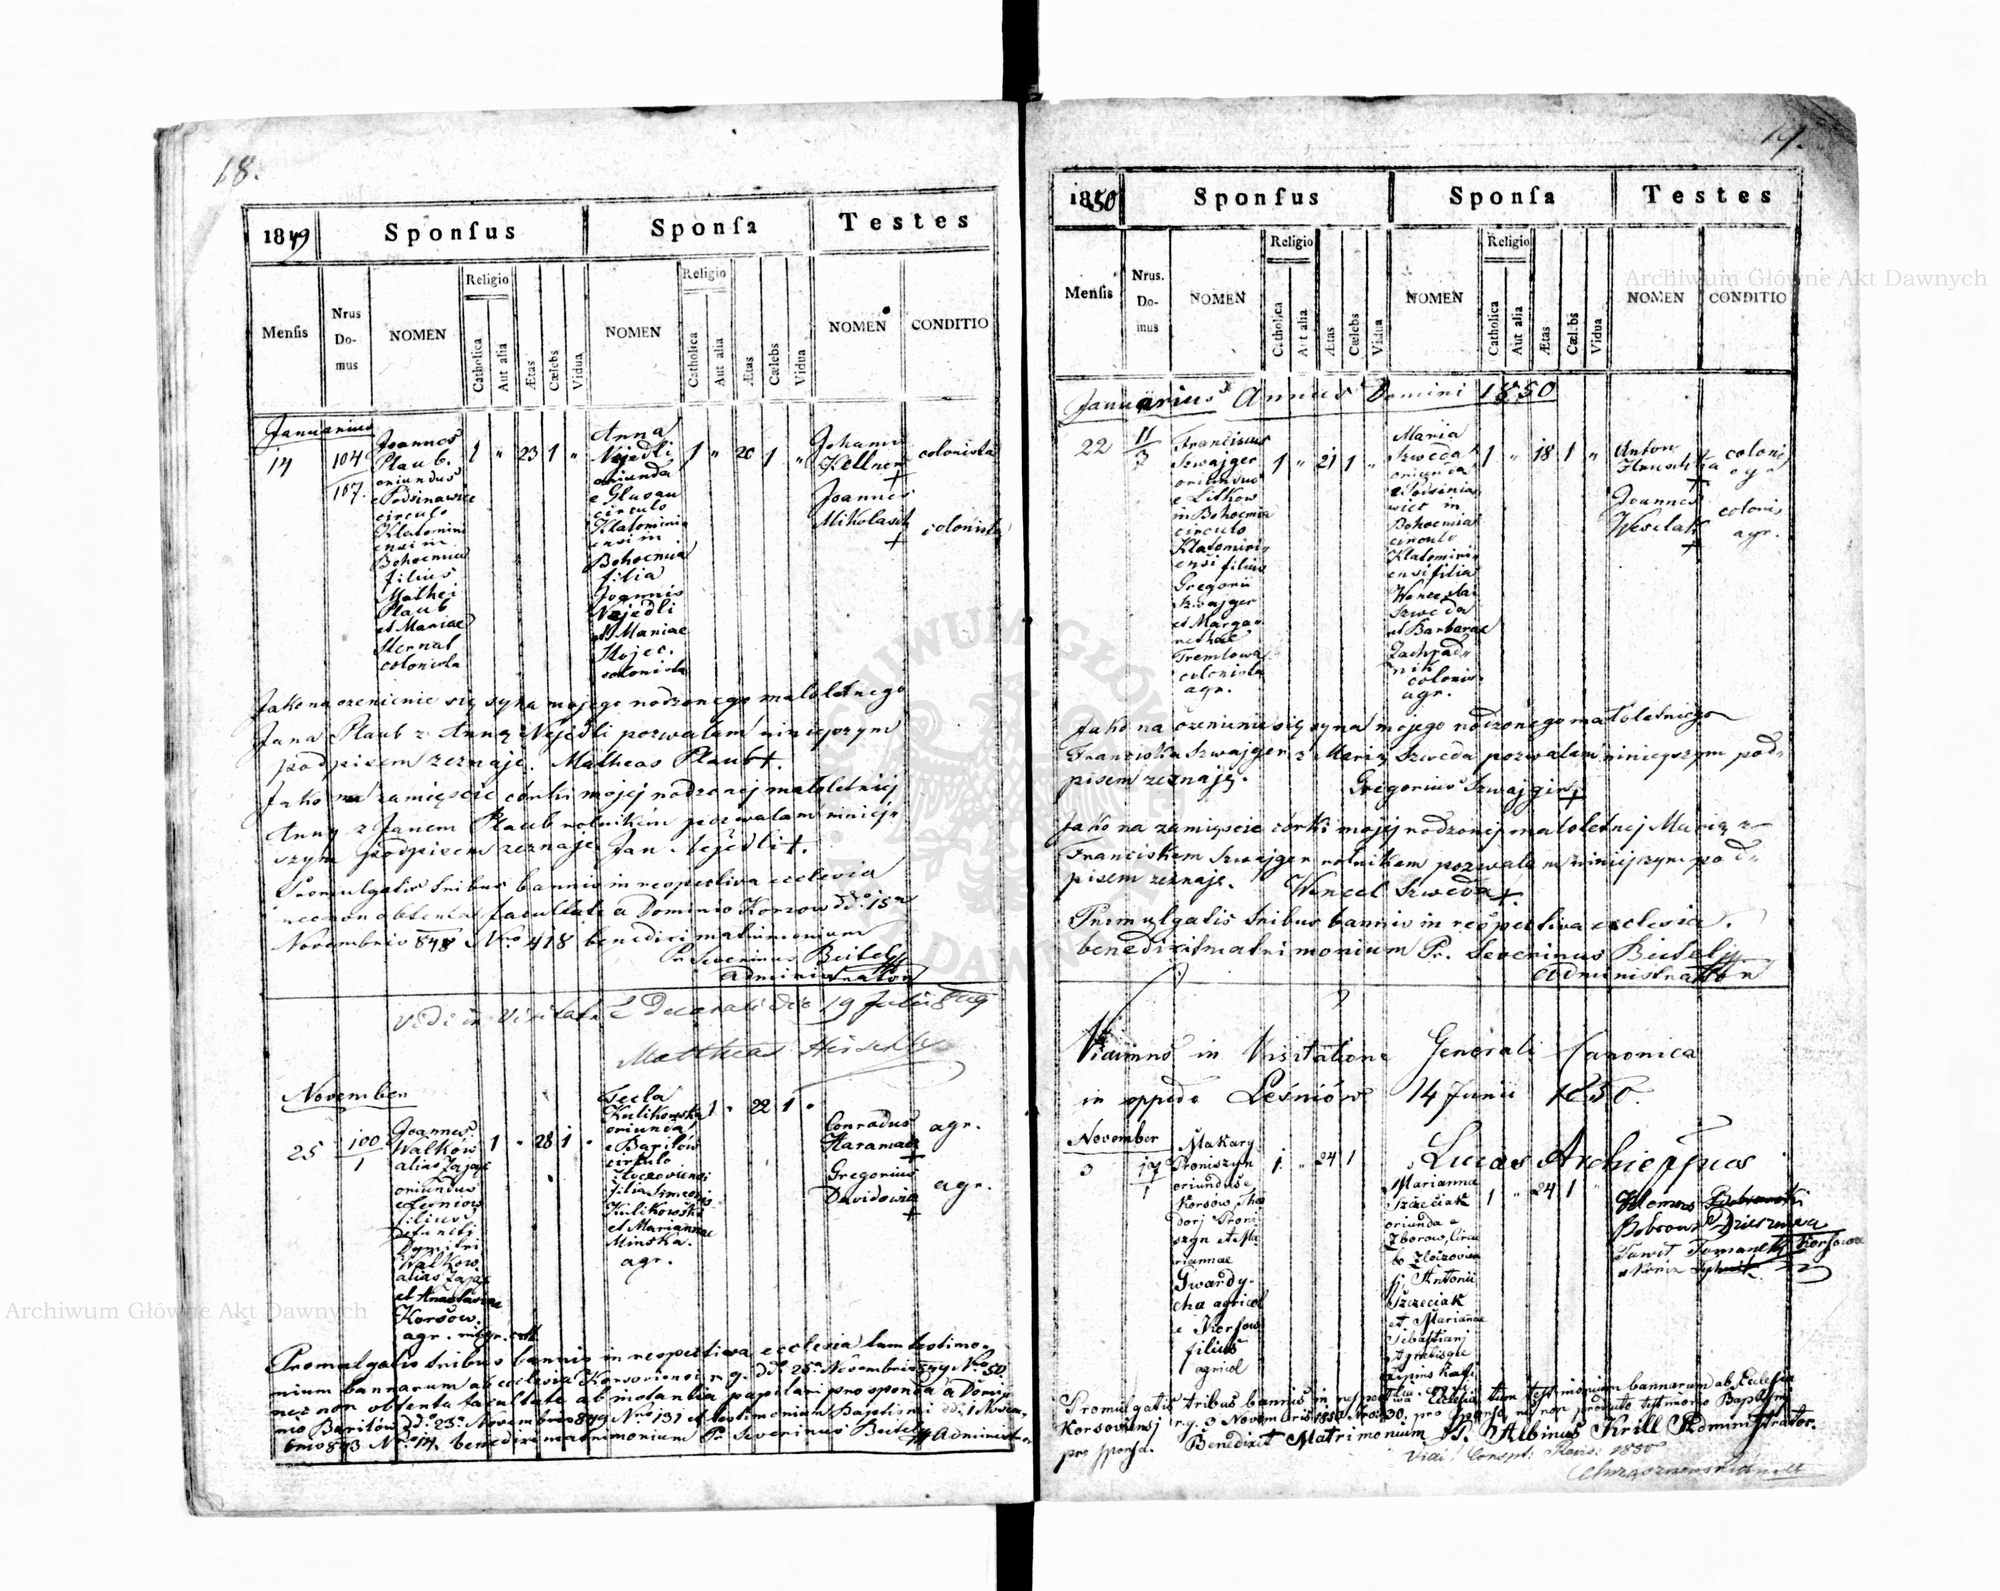 18.
1849
Sponſus
Sponſa
Testes
Menſis
Nrus
Do-
mus
NOMEN
Religio
Catholica
Aut alia
Ætas
Cælebs
Vidua
NOMEN
Religio
Catholica
Aut alia
Ætas
Cælebs
Vidua
NOMEN
CONDITIO
Januarius
14
104
107.
Joannes
Plaub.
oriundus
e Podsinawice
circulo
Klatomini
ensi in
Bohoemia
filius
Mathei
Plaub
et Mariae
Sternal
colonista
1 " 23 1 "
Anna
Nejedli
oriunda
e Glusau
circulo
Klatomini
ensi in
Bohoemia
filia
Joannis
Nejedli
et Mariae
Hojec.
colonista
1 " 20 1 "
Johann
Kellner
+
Joannes
Mikolasch
+
colonista
colonista
Jako na ozenienie się syna mojego rodzonego maloletnego
Jana Plaub z Anną Nejedli pozwalam niniejszym
podpisem zeznaję. Matheas Plaub +.
Jako na zamięscie córki mojej rodzonej maloletniej
Anny z Janem Plaub rolnikem pozwalam niniej-
szym podpisem zeznaję Jan Nejedli +.
Promulgatis tribus bannis in respectiva ecclesia
necnon obtenta facultate a Dominio Korsow dd. 15a
Novembris 848 Nro 418 benedixi matrimonium
Pr Severinus Bietely
Administrator
Vidi in Visitatne Decanali die 19 Julii 849
Matthias
November
25
100
1
Joannes
Walków
alias Zając
oriundus
e Lesniow
filius
Defuncti
Dymitri
Walkow.
alias Zając
et Anastasiae
Korsow.
agr.
1 " 28 1 "
Tecla
Kulikowska
oriunda
e Barilów
circulo
Zloczoviensi
filia Simeonis
Kulikowski
et Mariannae
Minska.
agr.
1 " 22 1 "
Conradus
Haramacz
+
Gregorius
Davidowicz
+
agr.
agr.
Promulgatis tribus bannis in respectiva ecclesia tam testimo-
nium bannarum ab ecclesia Korsoviensi r. g. dd. 25a Novembris 849 Nro 50.
nec non obtenta facultate ab instantia pupilari pro sponsa a Domi-
nio Barilów dd. 23a Novembris 849 Nro 131 et testimonium Baptismi dd. 1 Novem-
bris 843 Nro 14. benedixi matrimonium Pr Severinus Bietely Administr
19.
1850
Sponſus
Sponſa
Testes
Menſis
Nrus.
Do-
mus
NOMEN
Religio
Catholica
Aut alia
Ætas
Cælebs
Vidua
NOMEN
Religio
Catholica
Aut alia
Ætas
Cælebs
Vidua
NOMEN
CONDITIO
Januarius Annus Domini 1850
22
11
7
Franciscus
Szwajger
oriundus
e Litkow
in Bohoemia
circulo
Klatomini-
ensi filius
Gregorii
Szwajger
et Marga-
rethae
Tremlowa
colonista
agr.
1 " 21 1 "
Maria
Szweda
oriunda
e Podsinia-
wict in
Bohoemia
circulo
Klatomini-
ensi filia
Wencesla
Szweda
et Barbarae
Zachrad-
nik
colonis.
agr.
1 " 18 1 "
Anton
Hrusch
+
Joannes
Weselak
+
coloni
agr
colonis
agr.
Jako na ozenienie się syna mojego rodzonego maloletniego
Franciska Szwajger z Marią Szweda pozwalam niniejszym pod-
pisem zeznaję.
Gregorius Szwajger +
Jako na zamięscie córki mojej rodzonej maloletnej Marią z
Franciskem Szwajger rolnikem pozwalam niniejszym pod-
pisem zeznaję. Wencel Szweda +
Promulgatis tribus bannis in respectiva ecclesia.
benedixit matrimonium Pr. Severinus Bietely
Administrator
Vidimus in Visitatione Generali Canonica
in oppido Leśniów 14 Junii 1850.
Lucas Archieppus
November
3
17
1
Makary
Proniszyn
oriundus e
Korsów, Theo
dorj Proni
szyn et Ma
riannae
Gwardy-
cha agricol
e Korsow
filius
agricol
1 " 24 1
Marianna
Szzeciak
oriunda e
Zborow, Circu
lo Zloczovien
f. Antonii
Szzeciak
et Marianae
Sebastiani
1 " 24 1 "
Promulgatis tribus bannis in respectiva Ecclesia tum testimonium bannarum ab Ecclesia
Korsoviensj r. g. 3 Novembris 1850 Nro: 30. pro sponso nec non producto testimonio Baptysmj
pro sponsa. Benedixit Matrimonium Pr. Albinus Krill Administrator.
Vidi! Conspt: Revis: 1850
Archiwum Główne Akt Dawnych
Archiwum Główne Akt Dawnych
ARCHIWUM GŁÓWNE AKT DAWNYCH